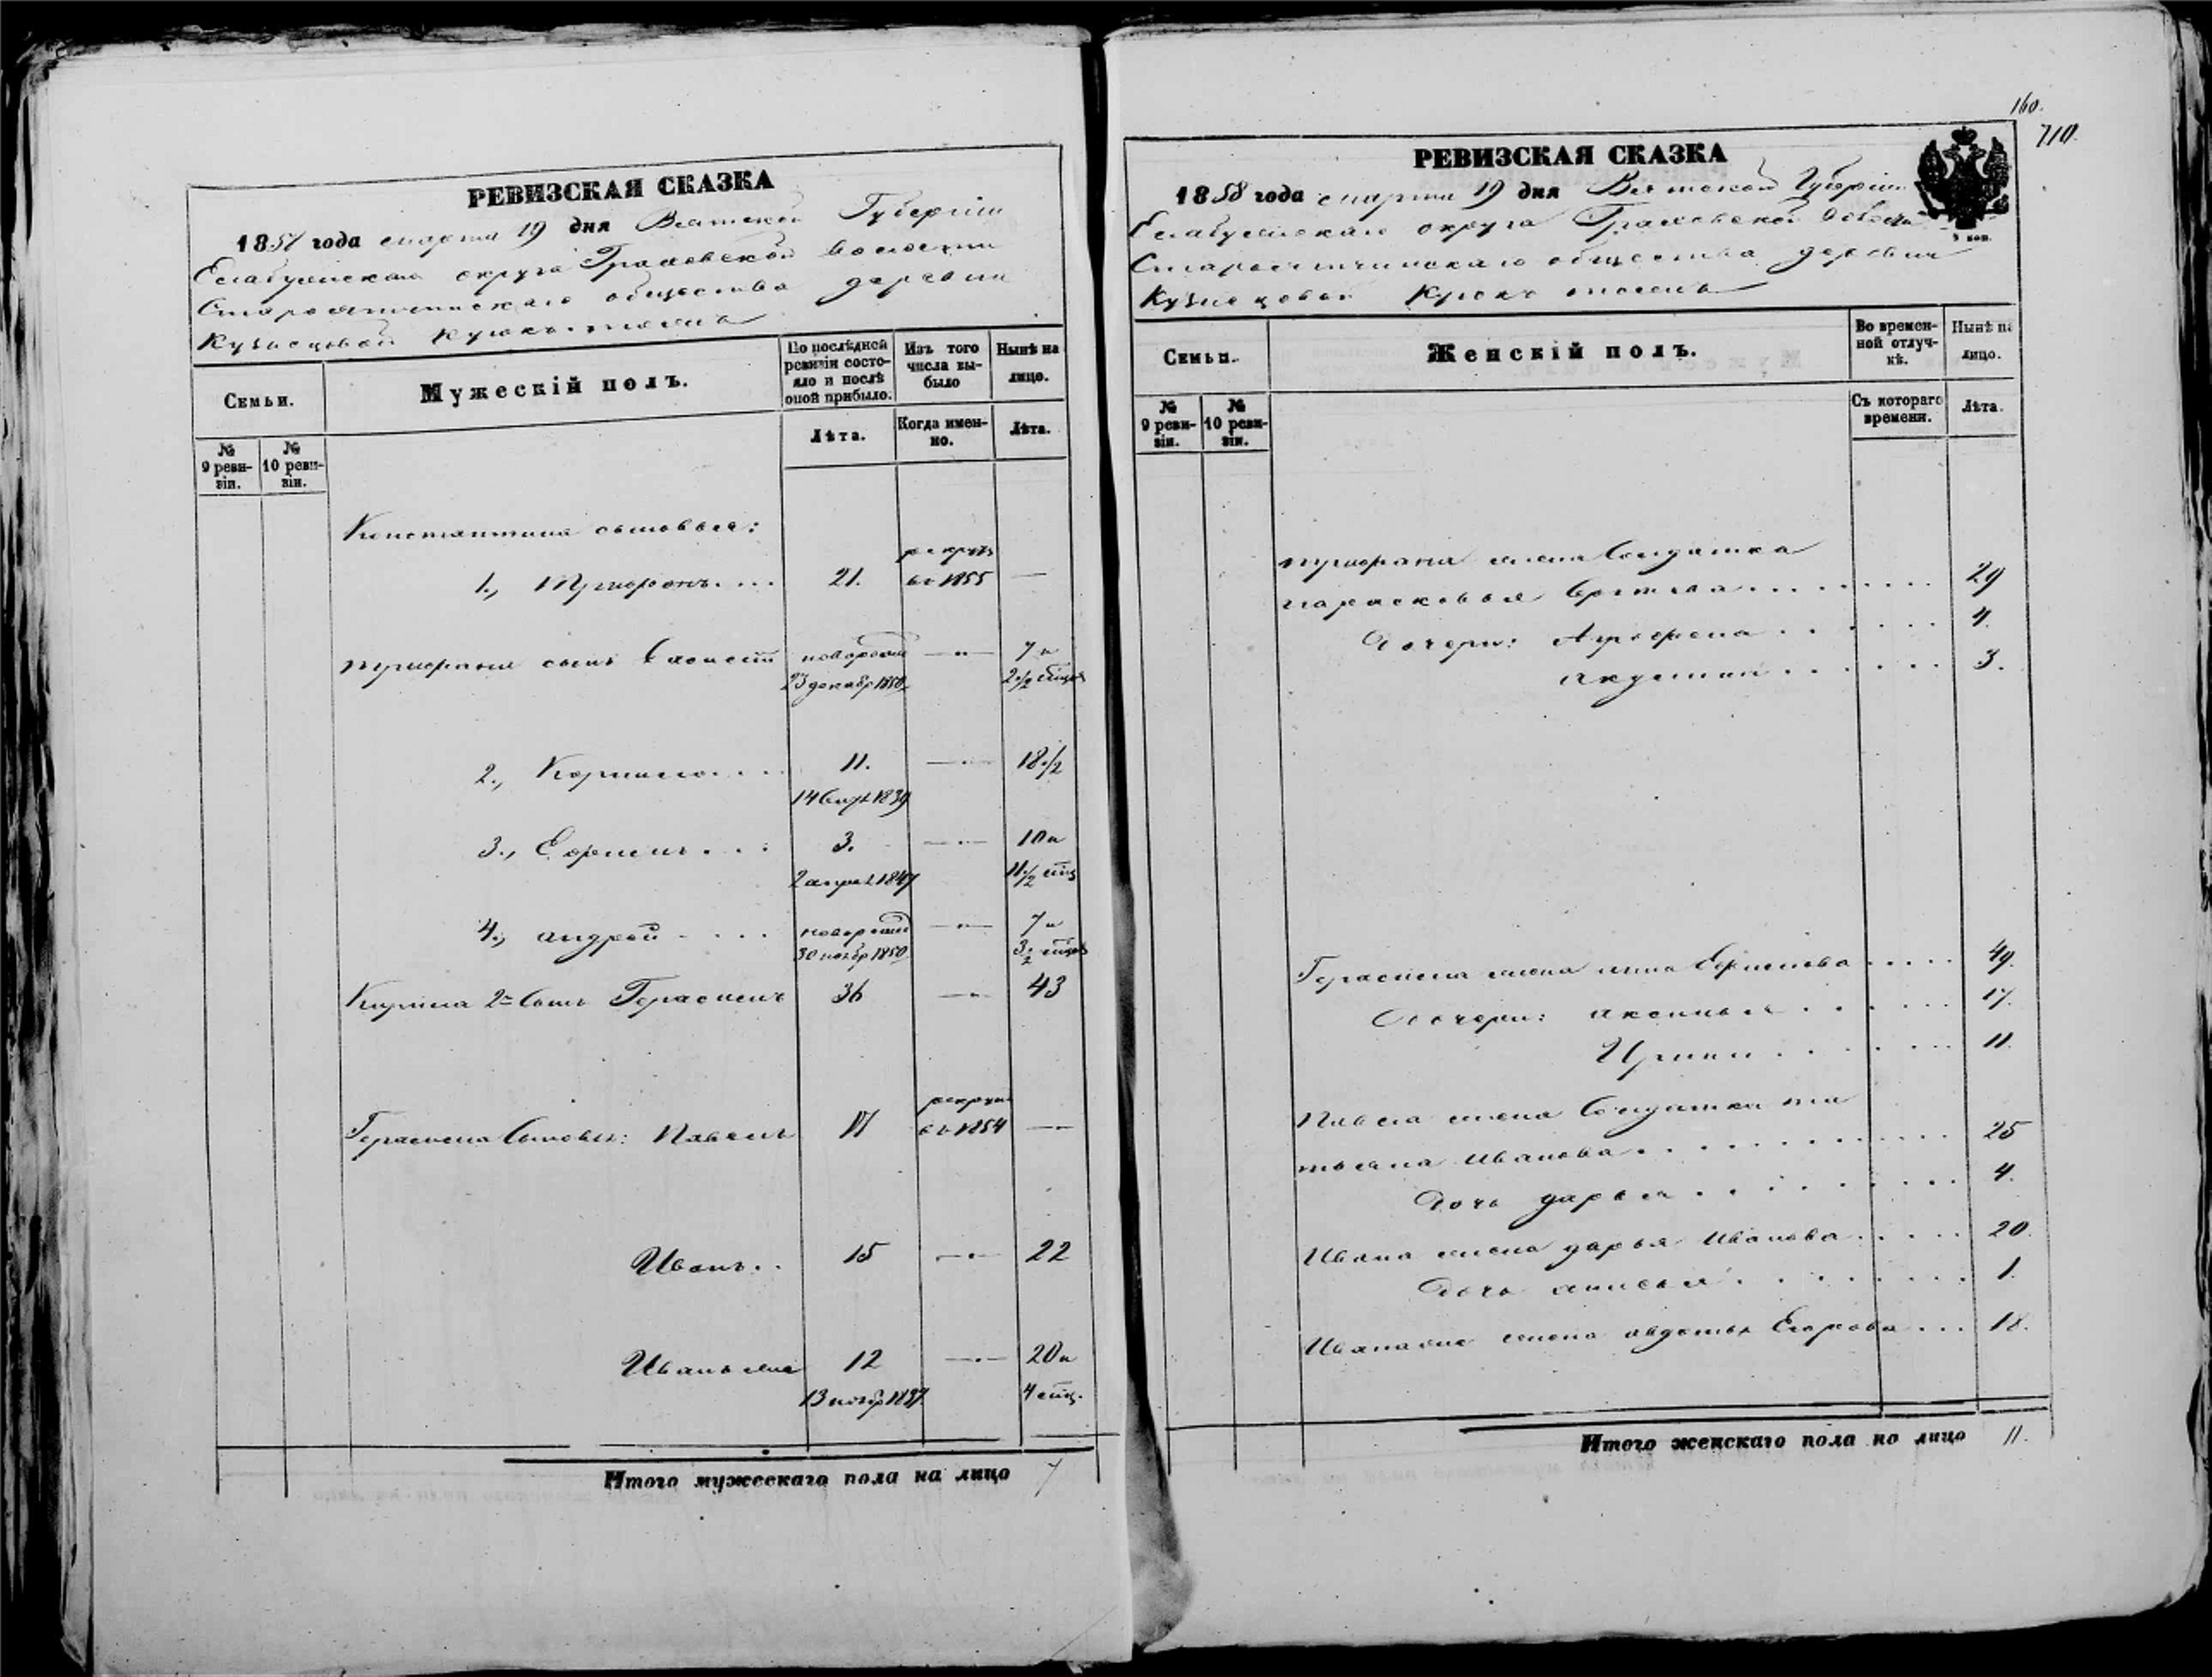 РЕВИЗСКАЯ СКАЗКА
1858 года марта 19 дня Вятской Губерніи
Елабужскаго округа Граховской волости
общества деревни
Кузнецовой
Семьи.
Мужескій полъ.
По послѣдней ревизіи состояло и послѣ оной прибыло.
Изъ того числа выбыло
Нынѣ на лицо.
№ 9 ревизіи.
№ 10 ревизіи.
Лѣта.
Когда именно.
Лѣта.
Константина сыновья:
1., Трифонъ.... 21. рекрутъ въ 1855 —
Трифона сынъ новорожд 23 декабр 1850 —"— 7 и 2 1/2 мѣцов
2., Корнило.... 11. 14 1839 —"— 18 1/2
3., Ефремъ... 3. 2 апрел 1847 —"— 10 и 11 1/2 мѣц
4., андрей.... новорожд 30 ноябр 1850 —"— 7 и 3 1/2 мѣцов
2й Сынъ Герасимъ 36 —"— 43
Герасима Сыновья: Павелъ рекрут въ 1854 —
Иванъ.. 15 —"— 22
Иванъ же 12 13 ноябр 1837 —"— 20 и 4 мѣц.
Итого мужескаго пола на лицо 7
160.
710.
РЕВИЗСКАЯ СКАЗКА
1858 года марта 19 дня Вятской Губерніи
Елабужскаго округа Граховской волости
общества деревни
Кузнецовой
Семьи.
Женскій полъ.
Во временной отлучкѣ.
Нынѣ на лицо.
№ 9 ревизіи.
№ 10 ревизіи.
Съ котораго времени.
Лѣта.
Трифона жена Солдатка
парасковья ........ 29
Дочери: Аграфена...... 4.
акулина...... 3.
Герасима жена анна Ефимова..... 49.
Дочери: аксинья...... 17.
Ирина...... 11.
Павла жена Солдатка та
тьяна Иванова........... 25
Дочь дарья......... 4.
Ивана жена дарья Иванова..... 20.
Дочь анисья........ 1.
Ивана же жена авдотья Егорова... 18.
Итого женскаго пола на лицо 11.